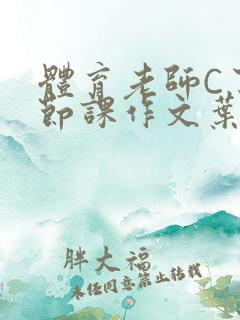 體育老師C
節課作文葉
胖大福
未經同意禁止轉載